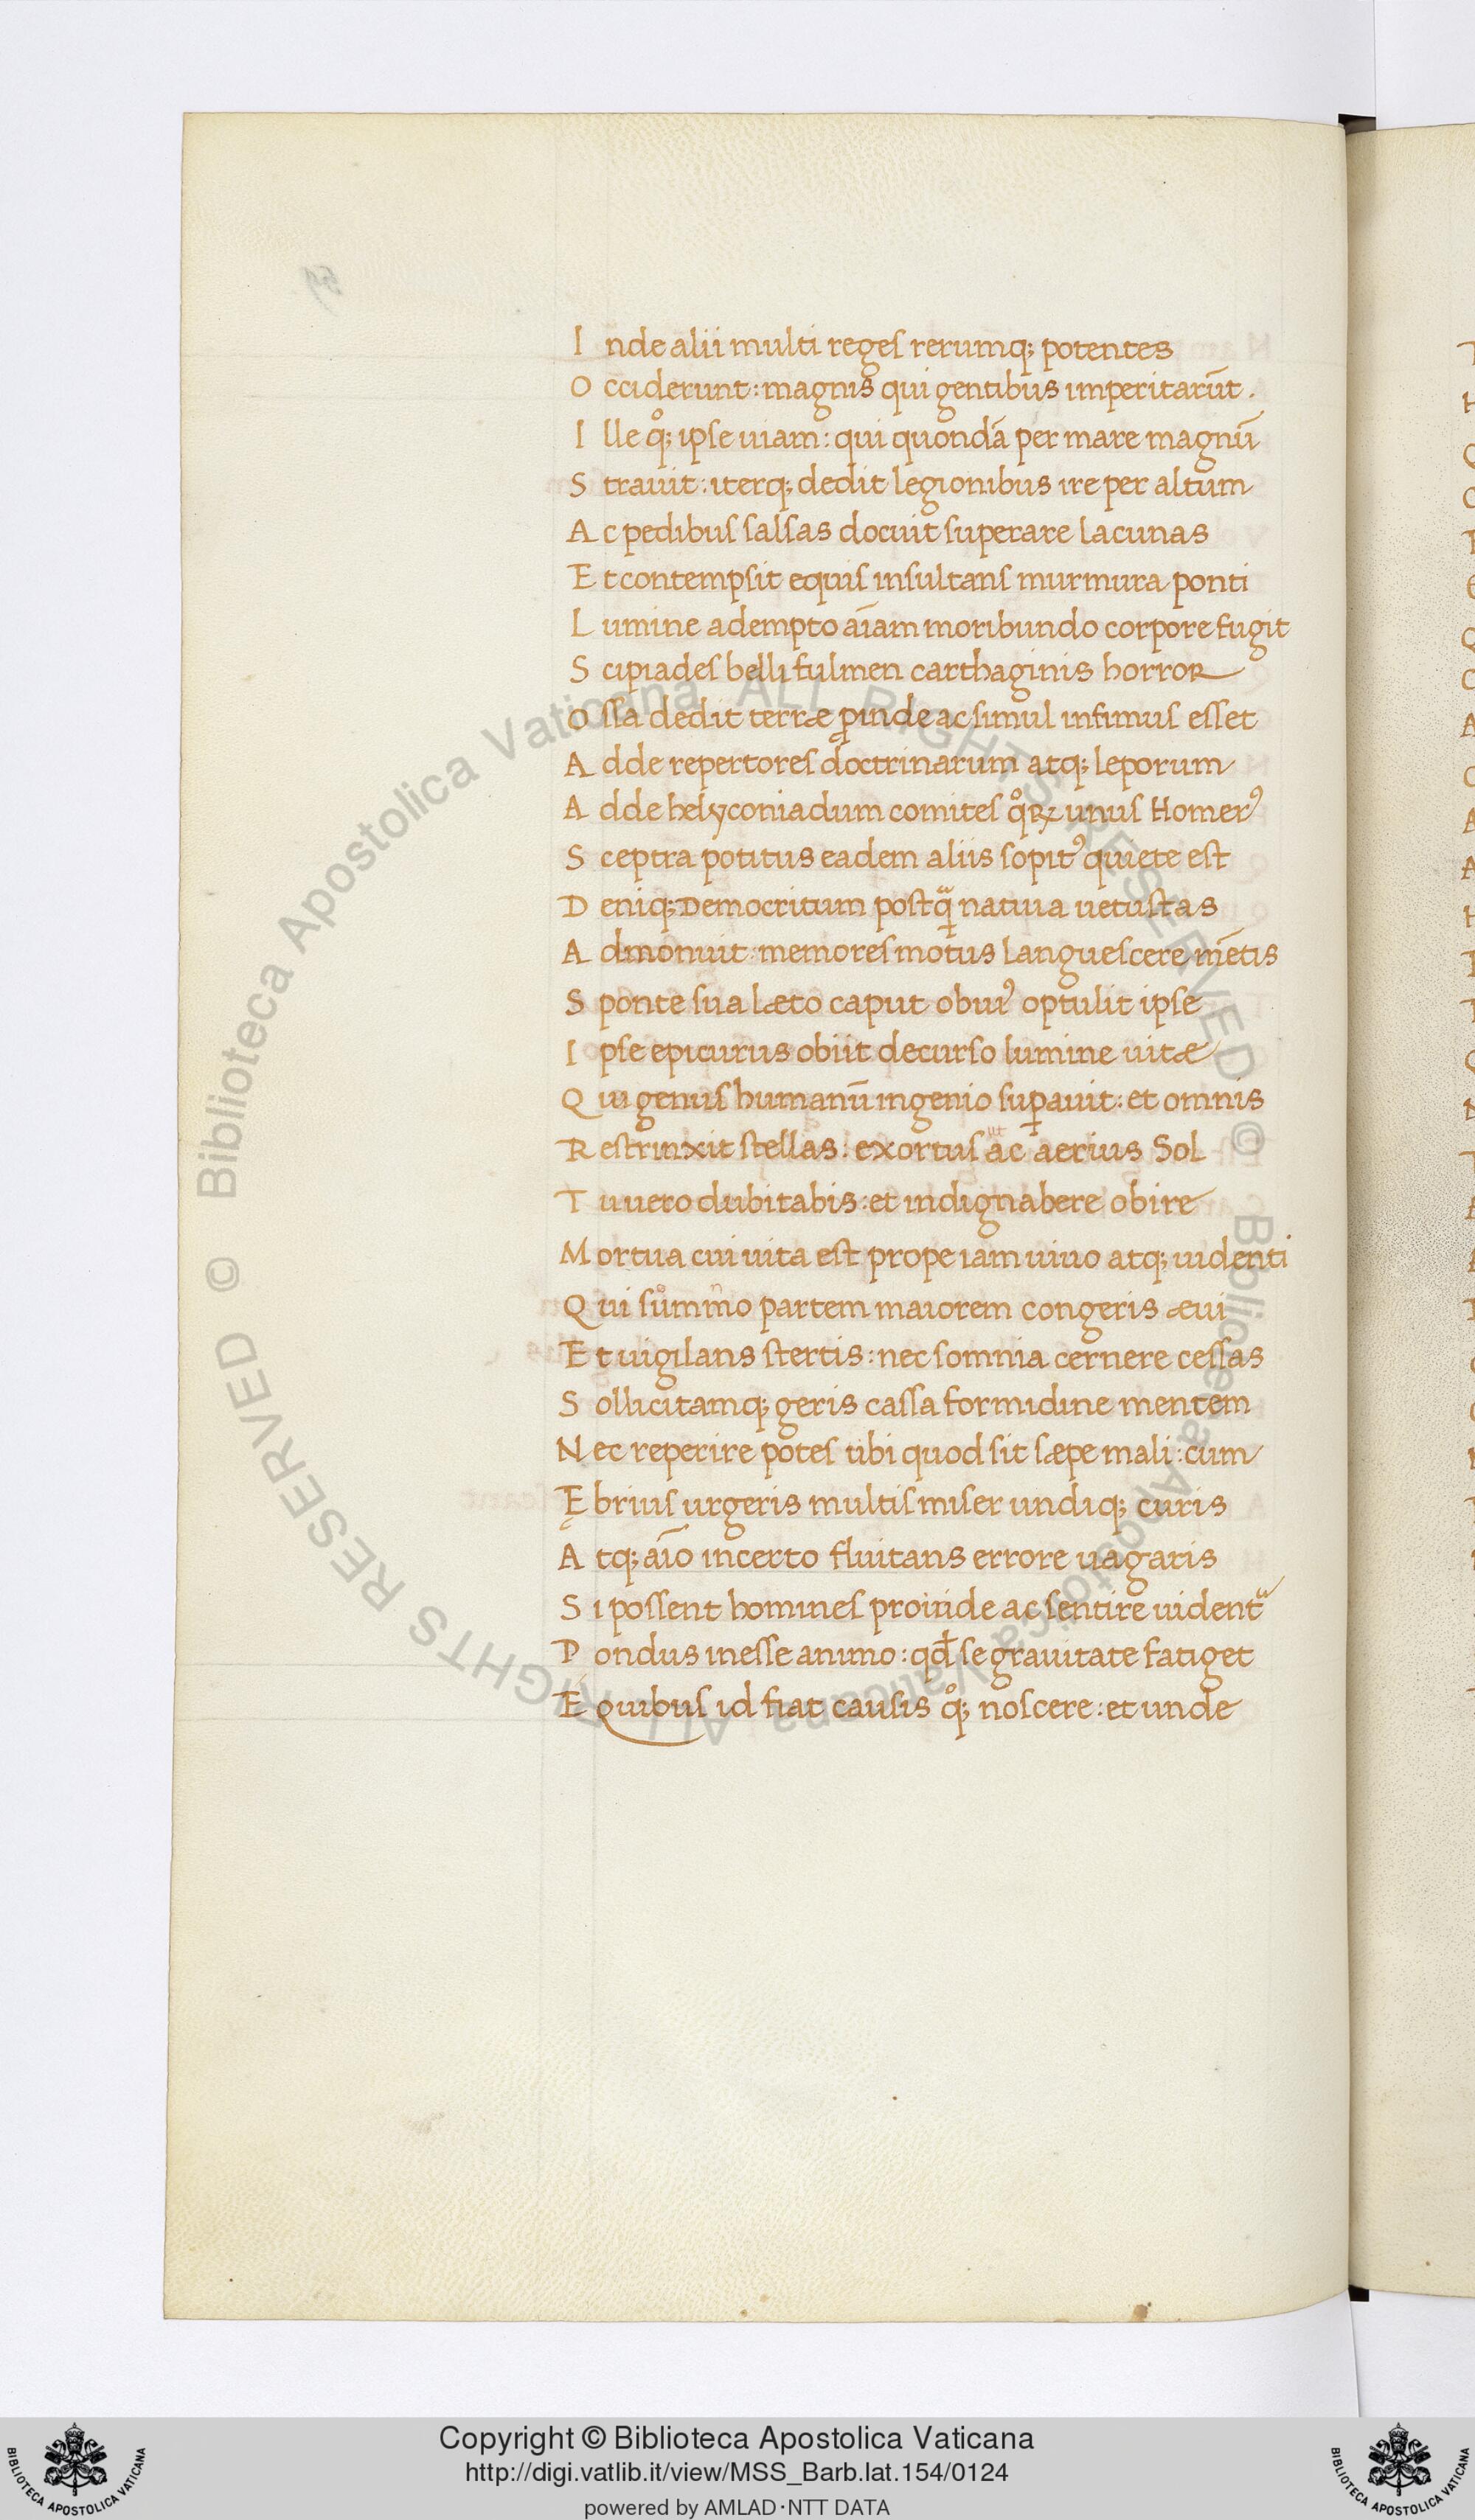 I nde alii multi reges rerumq; potentes
O cciderunt: magnis qui gentibus imperitarūt.
I lle qͦ; ipse uiam: qui quondā per mare magnū
S trauit: iterq; dedit legionibus ire per altum
A c pedibus salsas docuit superare lacunas
E t contempsit equis insultans murmura ponti
L umine adempto aīam moribundo corpore fugit
S cipiades belli fulmen carthaginis horror
O ssa dedit terræ ꝓinde ac simul infimus esset
A dde repertores doctrinarum atq; leporum
A dde helyconiadum comites qͦꝝ unus Homerꝰ
S ceptra potitus eadem aliis sopitꝰ quiete est
D eniq; Democritum postqᷓ natiua uetustas
A dmonuit: memores motus languescere mētis
S ponte sua læto caput obuiꝰ optulit ipse
I pse epicurus obiit decurso lumine uitæ
Q ui genus humanū ingenio suꝑauit: et omnis
R estrinxit stellas: exortus ac ut aerius Sol
T u uero dubitabis: et indignabere obire
M ortua cui uita est prope iam uiuo atq; uidenti
Q ui summo partem maiorem congeris æui
E t uigilans stertis: nec somnia cernere cessas
S ollicitamq; geris cassa formidine mentem
N ec reperire potes tibi quod sit sæpe mali: cum
Ę brius urgeris multis miser undiq; curis
A tq; aīo incerto fluitans errore uagaris
S i possent homines proinde ac sentire uidentᷓ
P ondus inesse animo: qđ se grauitate fatiget
E quibus id fiat causis qͦ; noscere: et unde
59
© Biblioteca Apostolica Vaticana ALL RIGHTS RESERVED © Biblioteca Apostolica Vaticana ALL RIGHTS RESERVED
Copyright © Biblioteca Apostolica Vaticana
http://digi.vatlib.it/view/MSS_Barb.lat.154/0124
powered by AMLAD·NTT DATA
BIBLIOTECA APOSTOLICA VATICANA
BIBLIOTECA APOSTOLICA VATICANA